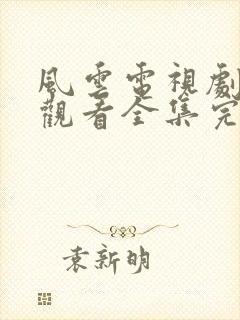 風雲電視劇
觀看全集完
袁新明